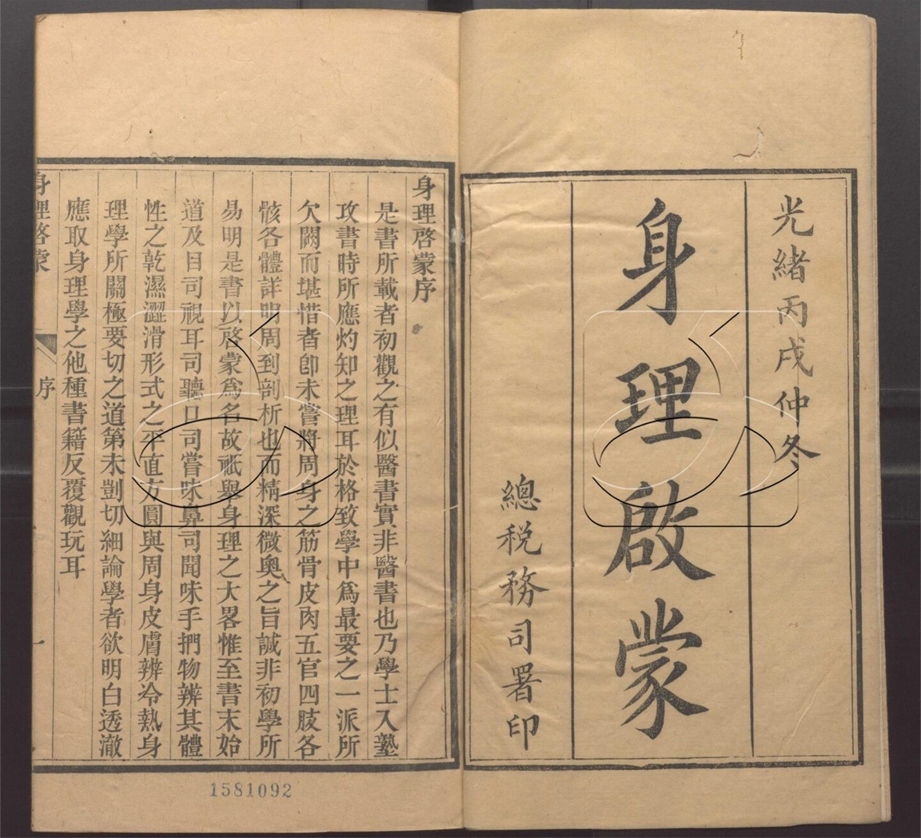 光緒丙戌仲冬
身理啟蒙
總税務司署印
身理啓蒙序
是書所載者初觀之有似醫書實非醫書也乃學士入塾
攻書時所應灼知之理耳於格致學中爲最要之一派所
欠闕而堪惜者卽未嘗將周身之筋骨皮肉五官四肢各
骸各體詳明周到剖析也而精深微奧之旨誠非初學所
易明是書以啓蒙爲名故祇舉身理之大畧惟至書末始
道及目司視耳司聽口司嘗味鼻司聞味手捫物辨其體
性之乾濕澀滑形式之平直方圓與周身皮膚辨冷熱身
理學所關極要切之道第未剴切細論學者欲明白透澈
應取身理學之他種書籍反覆觀玩耳
身理啓蒙
序
一
1581092